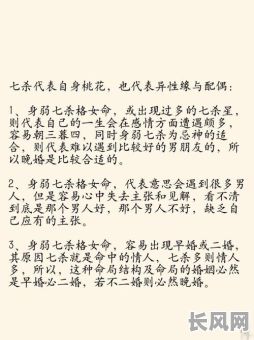 七杀代表自身桃花，也代表异性缘与配偶：
1、身弱七杀格女命，或出现过多的七杀星，
则代表自己的一生会在感情方面遭遇颇多，
容易朝三暮四，同时身弱七杀为忌神的话
，则代表难以遇到比较好的男朋友的，所
以晚婚是比较合适的。
2、身弱七杀格女命，代表意思会遇到很多男
人，但是容易心中失去主张和见解，看不清
到底是那个男人好，那个男人不好，缺乏自
己应有的主张。
3、身弱七杀格女命，容易出现早婚或二婚，
其原因七杀就是命中的情人，七杀多则情人
多，所以，这种命局结构及命局的婚姻必然
是早婚必二婚，若不二婚则必然晚婚。
长风网